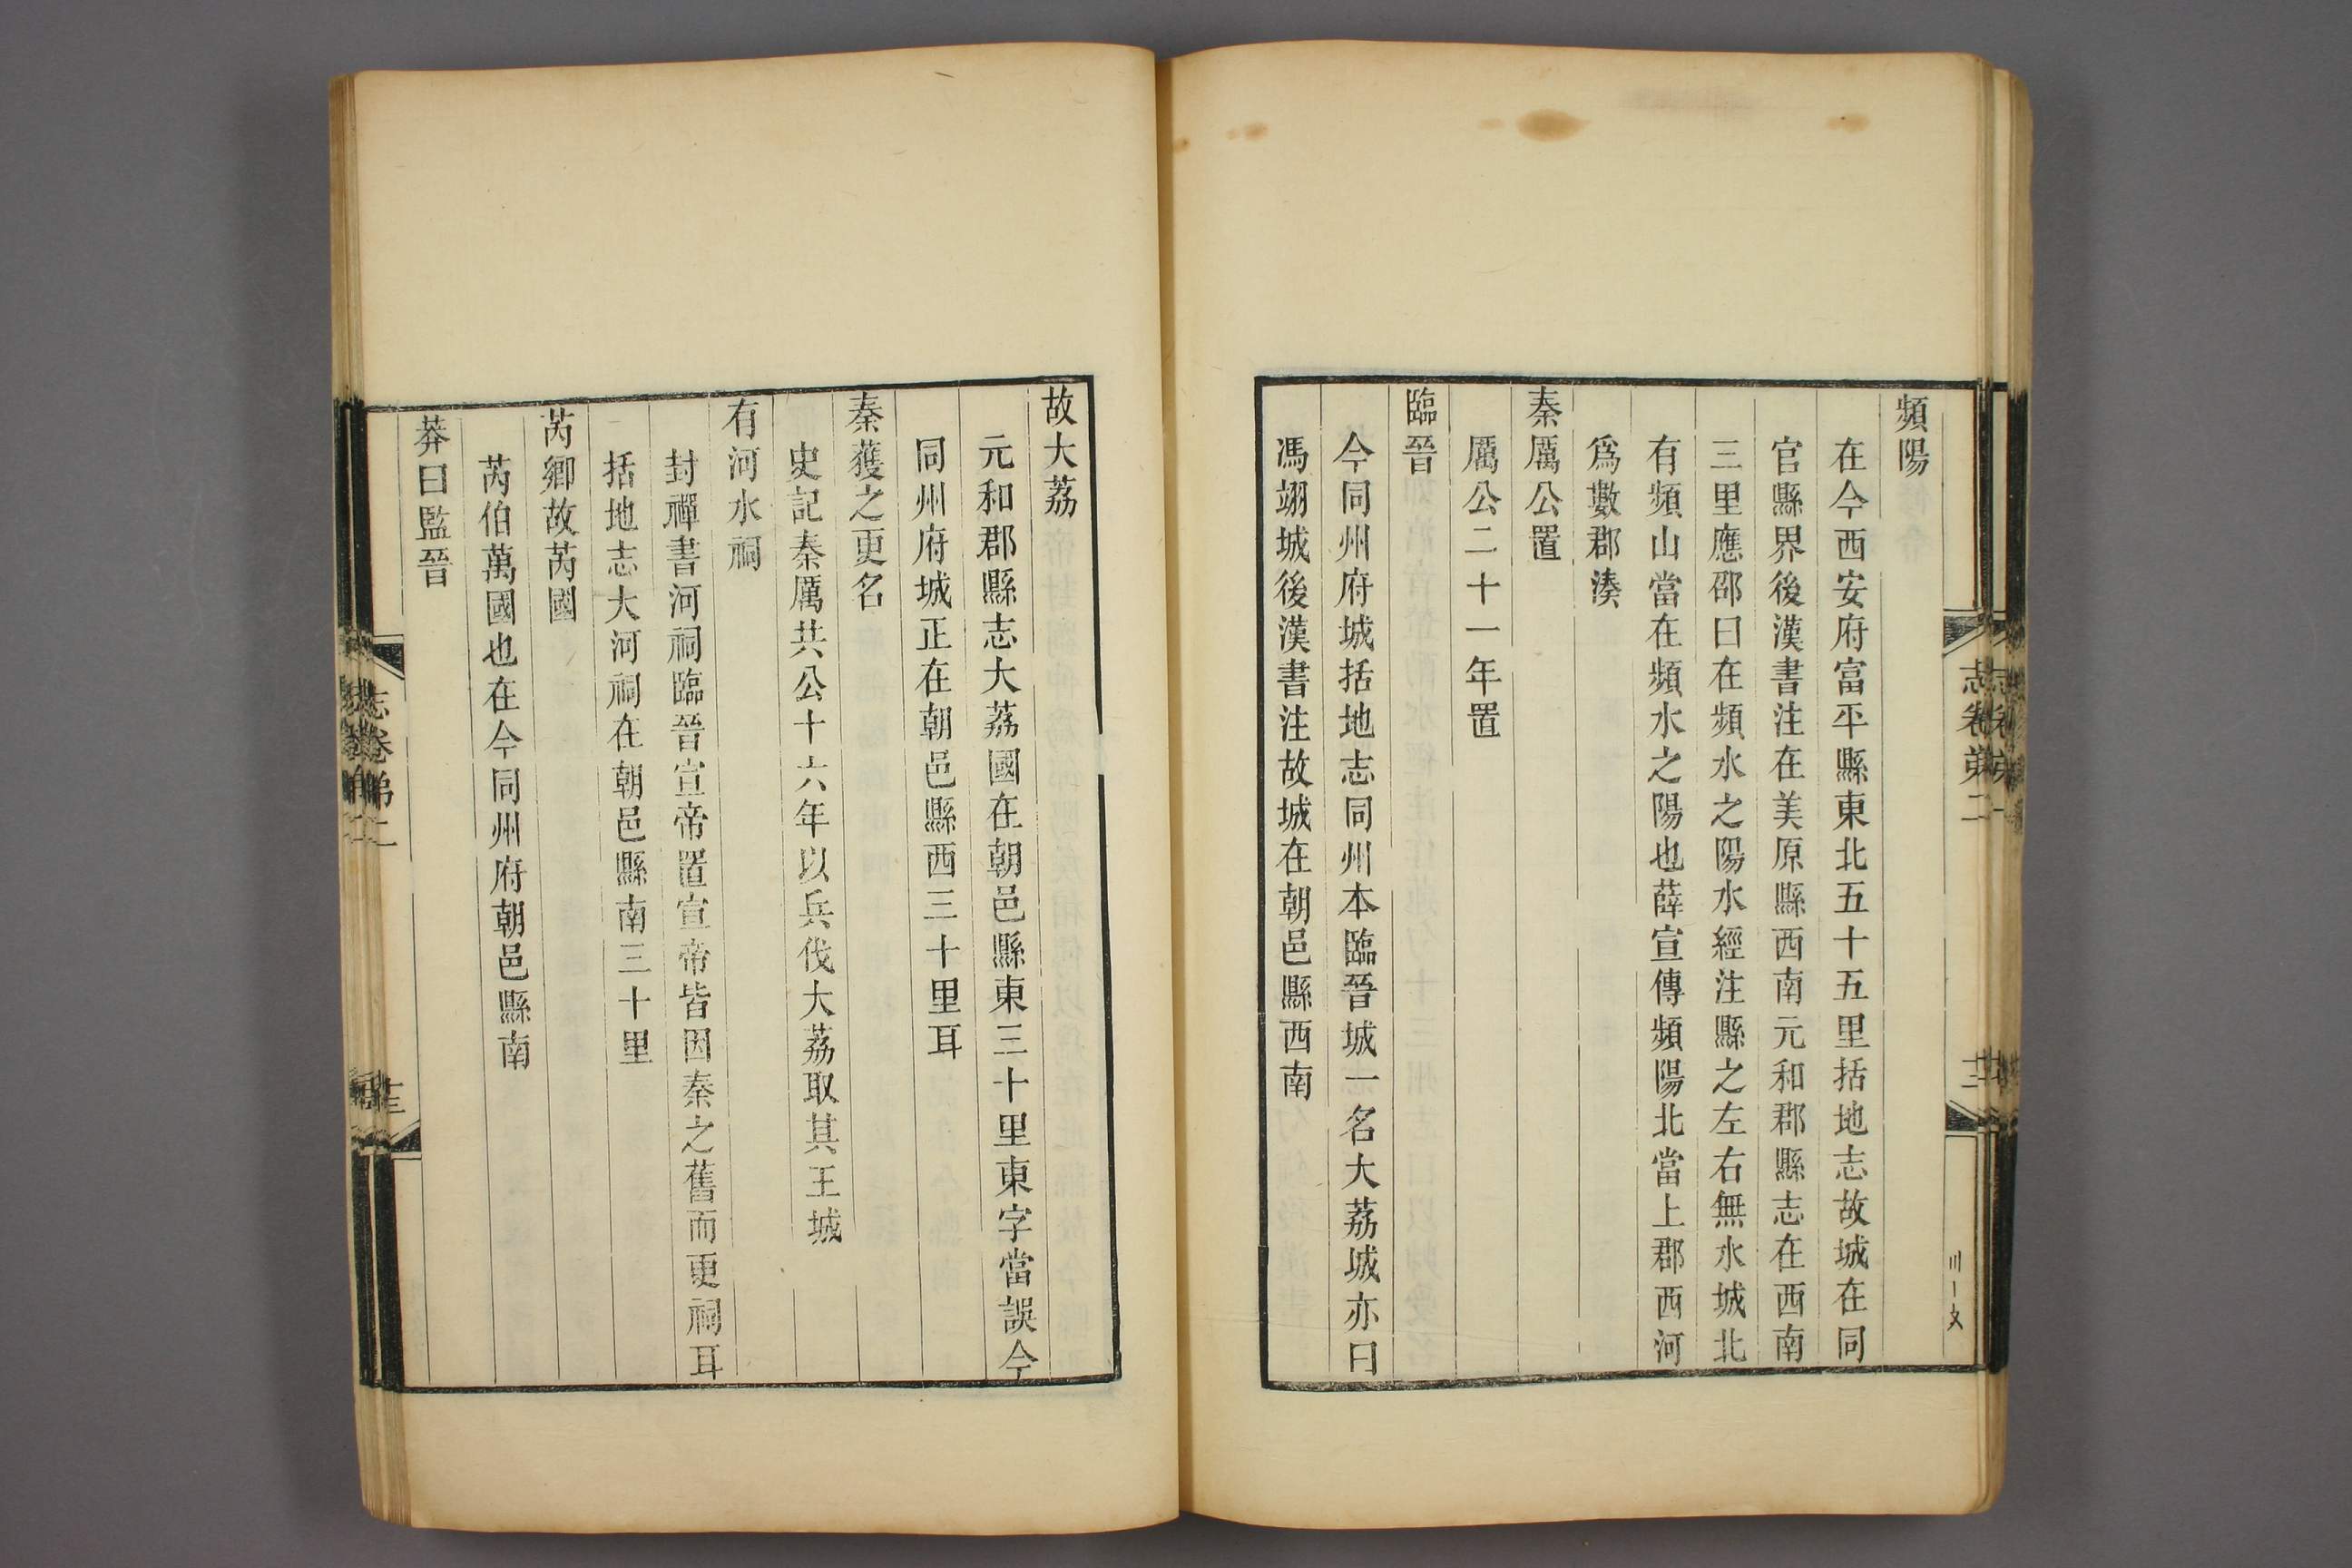 頻陽
在今西安府富平縣東北五十五里括地志故城在同
官縣界後漢書注在美原縣西南元和郡縣志在西南
三里應邵曰在頻水之陽水經注縣之左右無水城北
有頻山當在頻水之陽也薛宣傳頻陽北當上郡西河
爲數郡湊
秦厲公置
厲公二十一年置
臨晉
今同州府城括地志同州本臨晉城一名大荔城亦曰
馮翊城後漢書注故城在朝邑縣西南
志卷弟二
十二
故大荔
元和郡縣志大荔國在朝邑縣東三十里東字當誤今
同州府城正在朝邑縣西三十里耳
秦獲之更名
史記秦厲共公十六年以兵伐大荔取其王城
有河水祠
封禪書河祠臨晉宣帝置宣帝皆因秦之舊而更祠耳
括地志大河祠在朝邑縣南三十里
芮鄉故芮國
芮伯萬國也在今同州府朝邑縣南
莽曰監晉
志卷弟二
十三